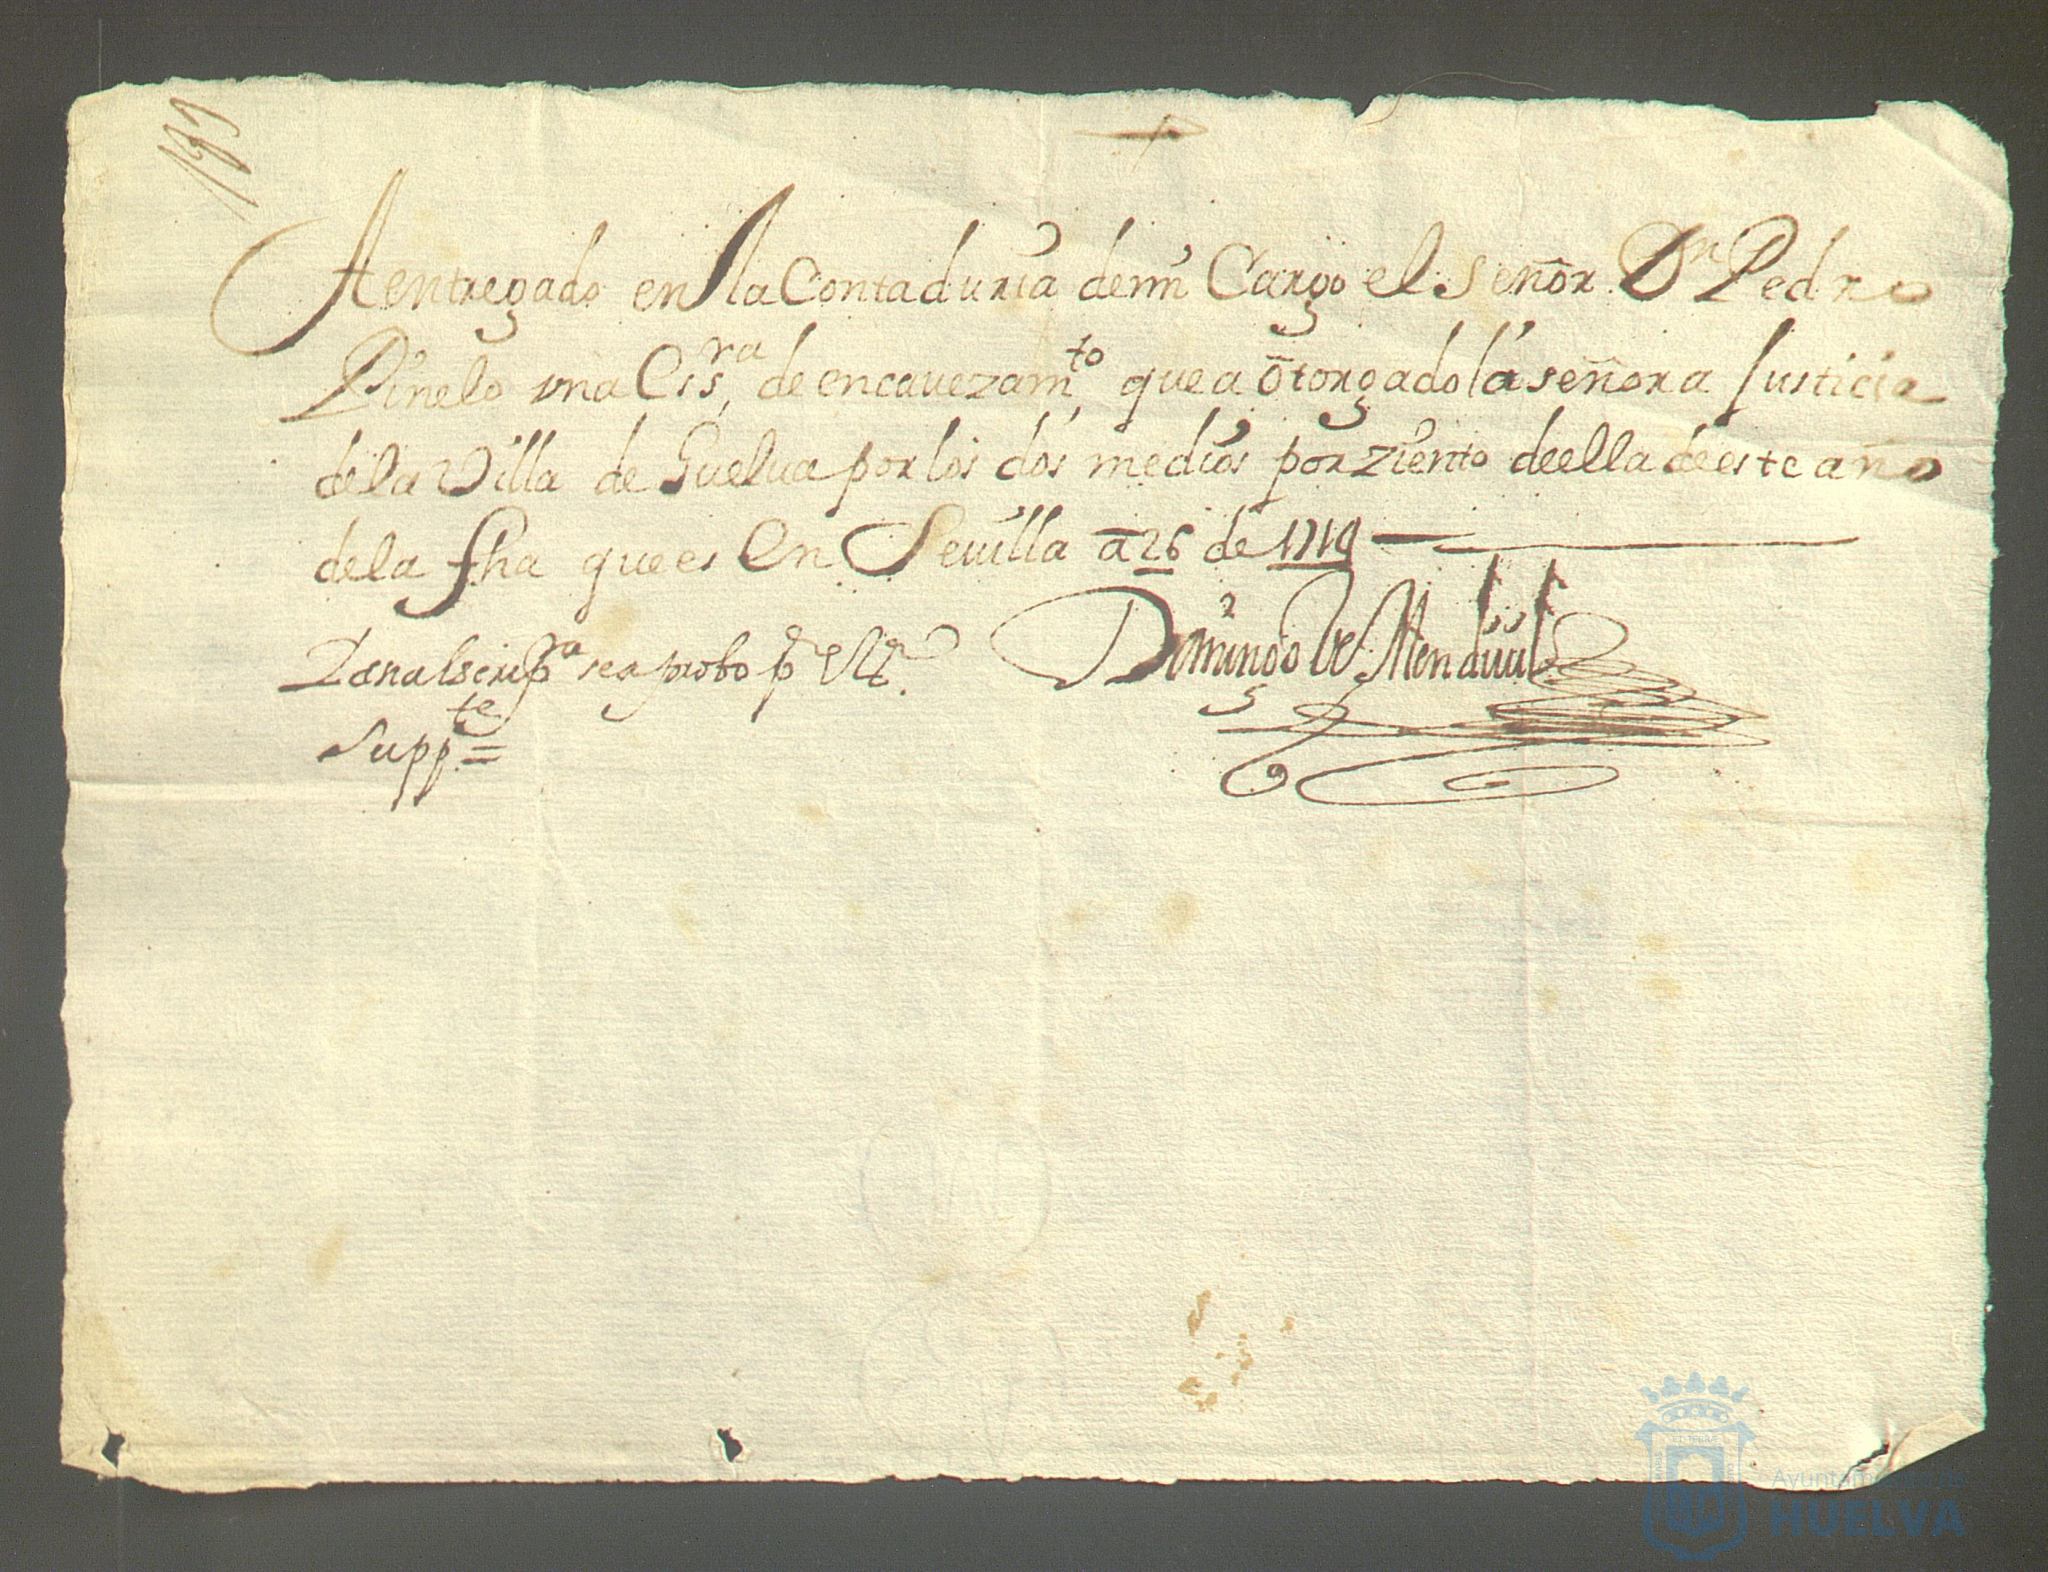 133
Aentregado en la Contaduria de mi Cargo el señor Dn Pedro
Pinelo vna Essra, de encauezamto, que a otorgado la señora Justicia
de la Villa de Guelua por los dos medios por ziento de ella de este año
de la fha que es En Seuilla a 26 de 1719
se aprobo pr
Suppte =
Domingo de Mendiuil
Ayuntamiento de
HUELVA